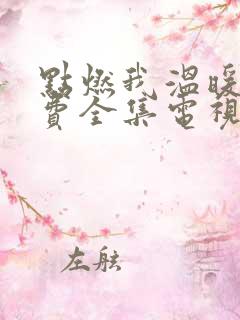 點燃我溫暖
費全集電視
左舷